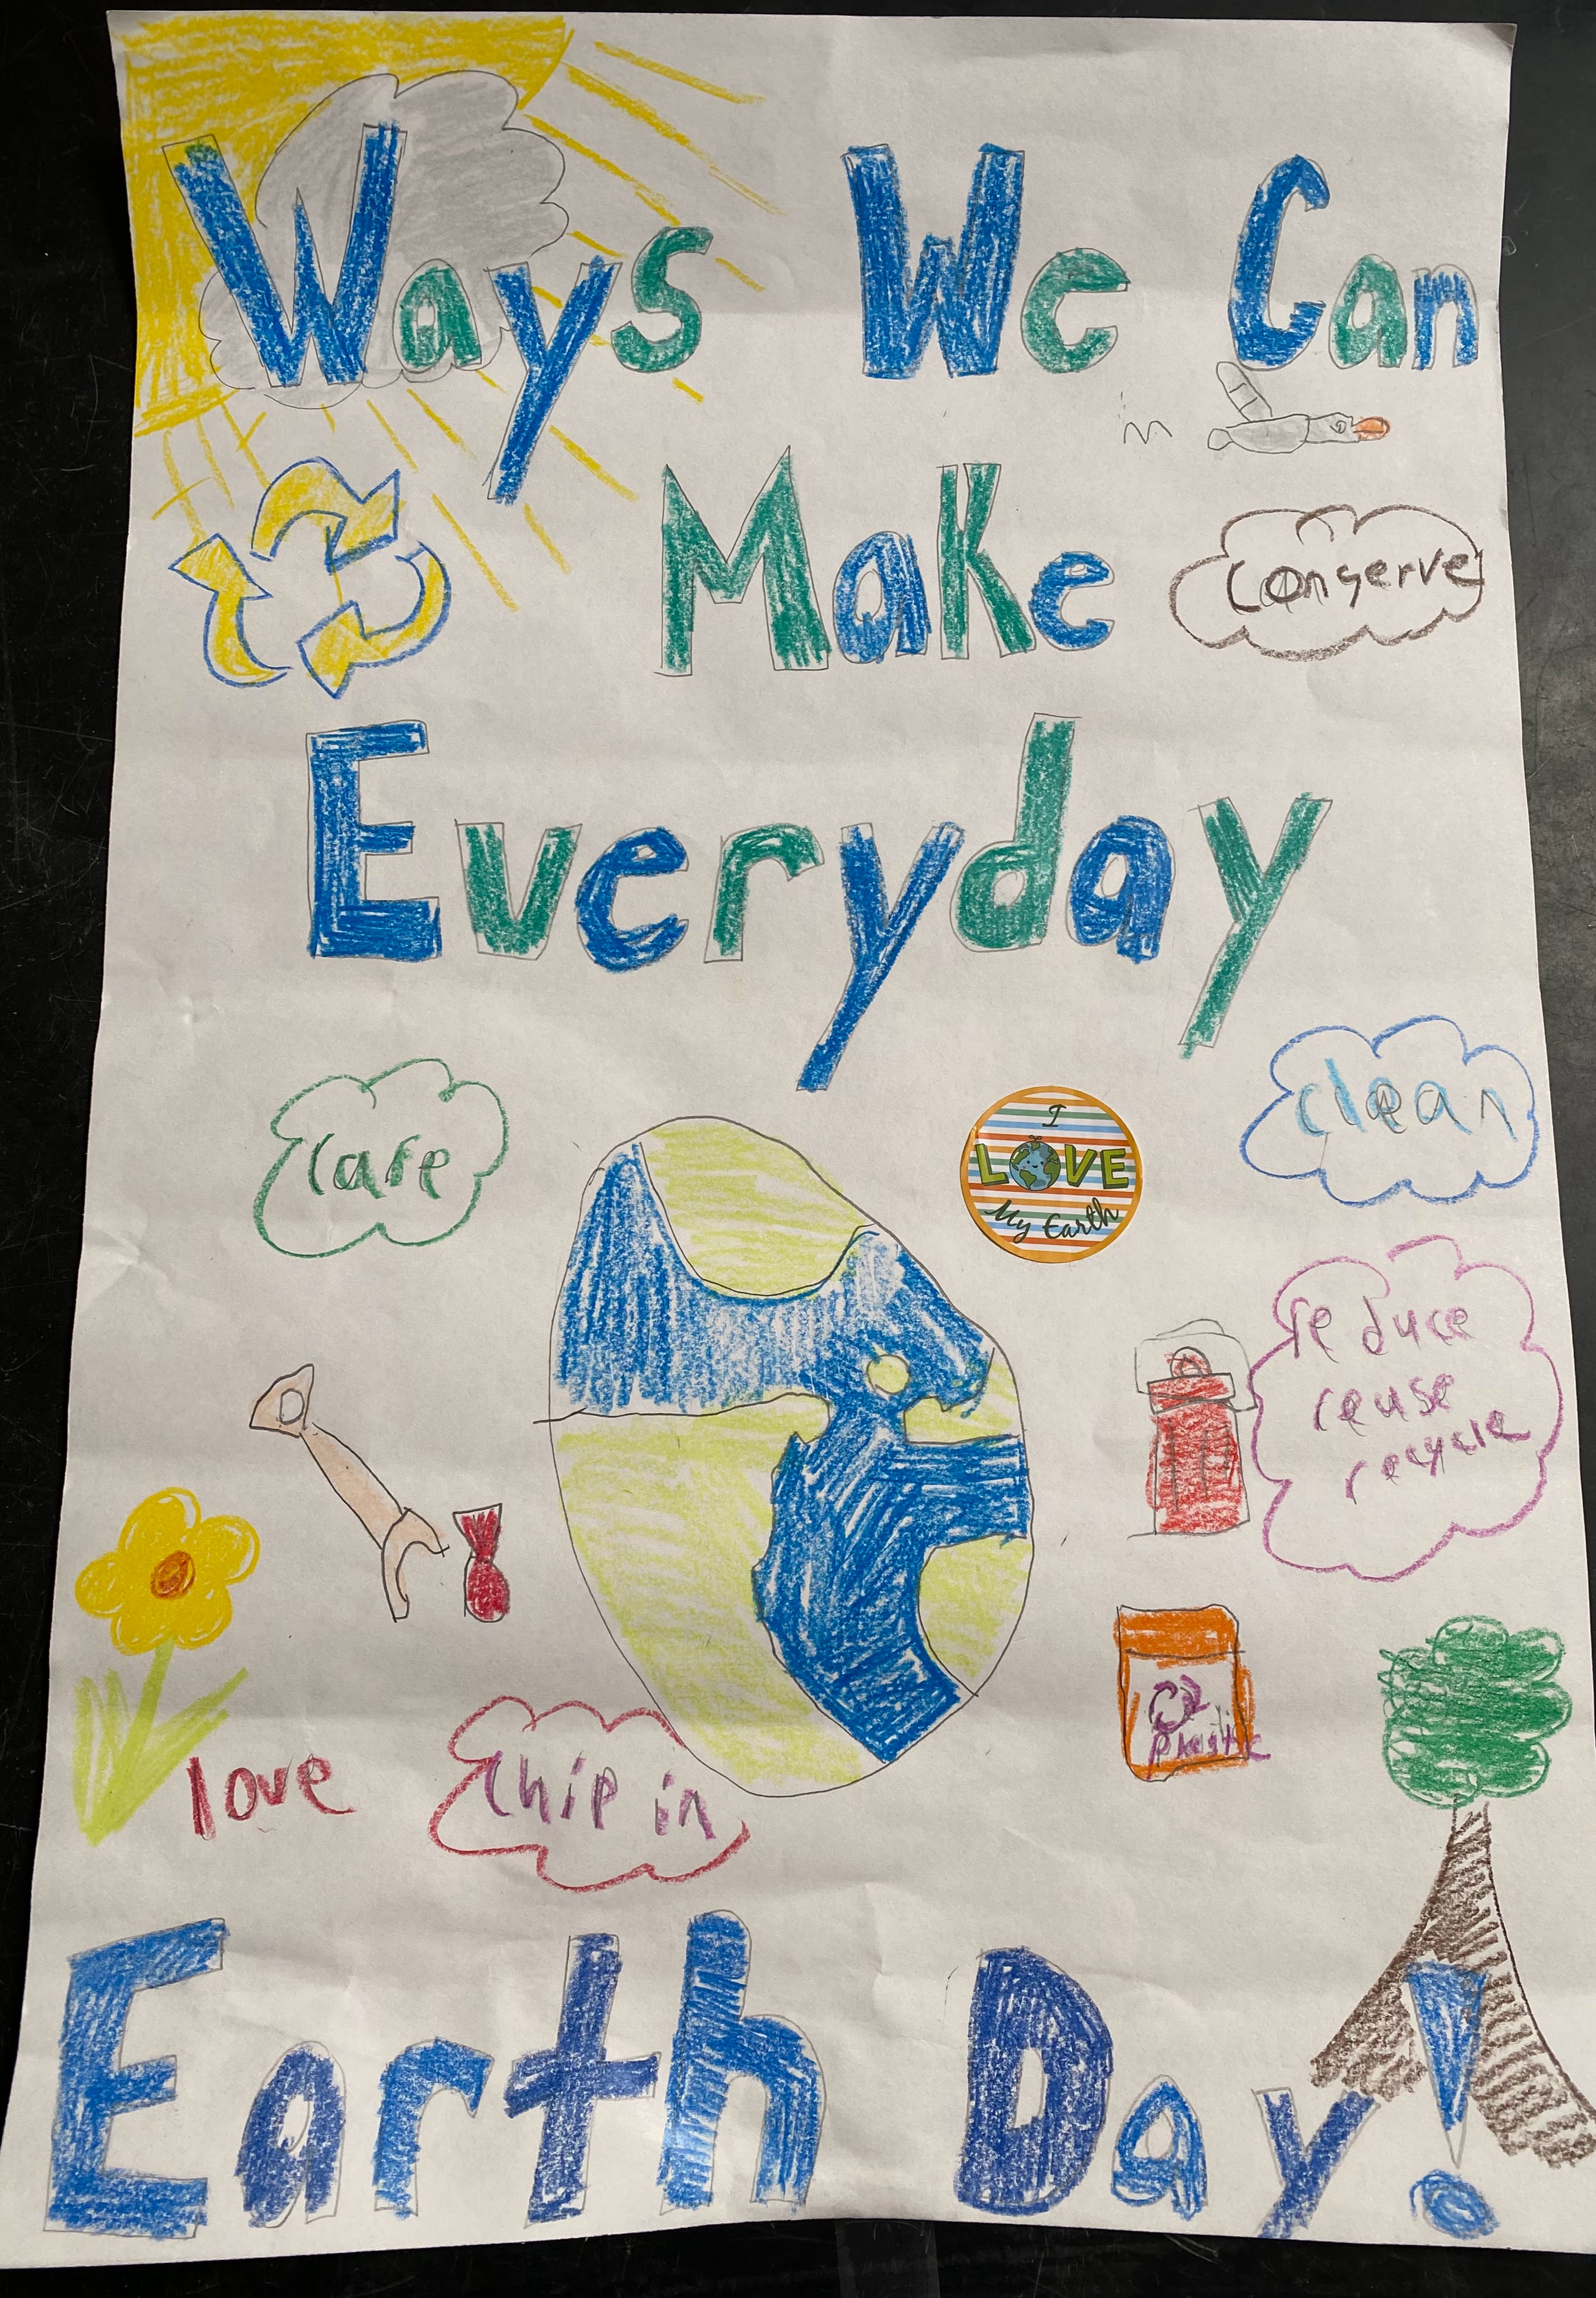 Ways We Can
Make
conserve
Everyday
care
clean
I
LOVE
My Earth
reduce
reuse
recycle
plastic
love
chip in
Earth Day!